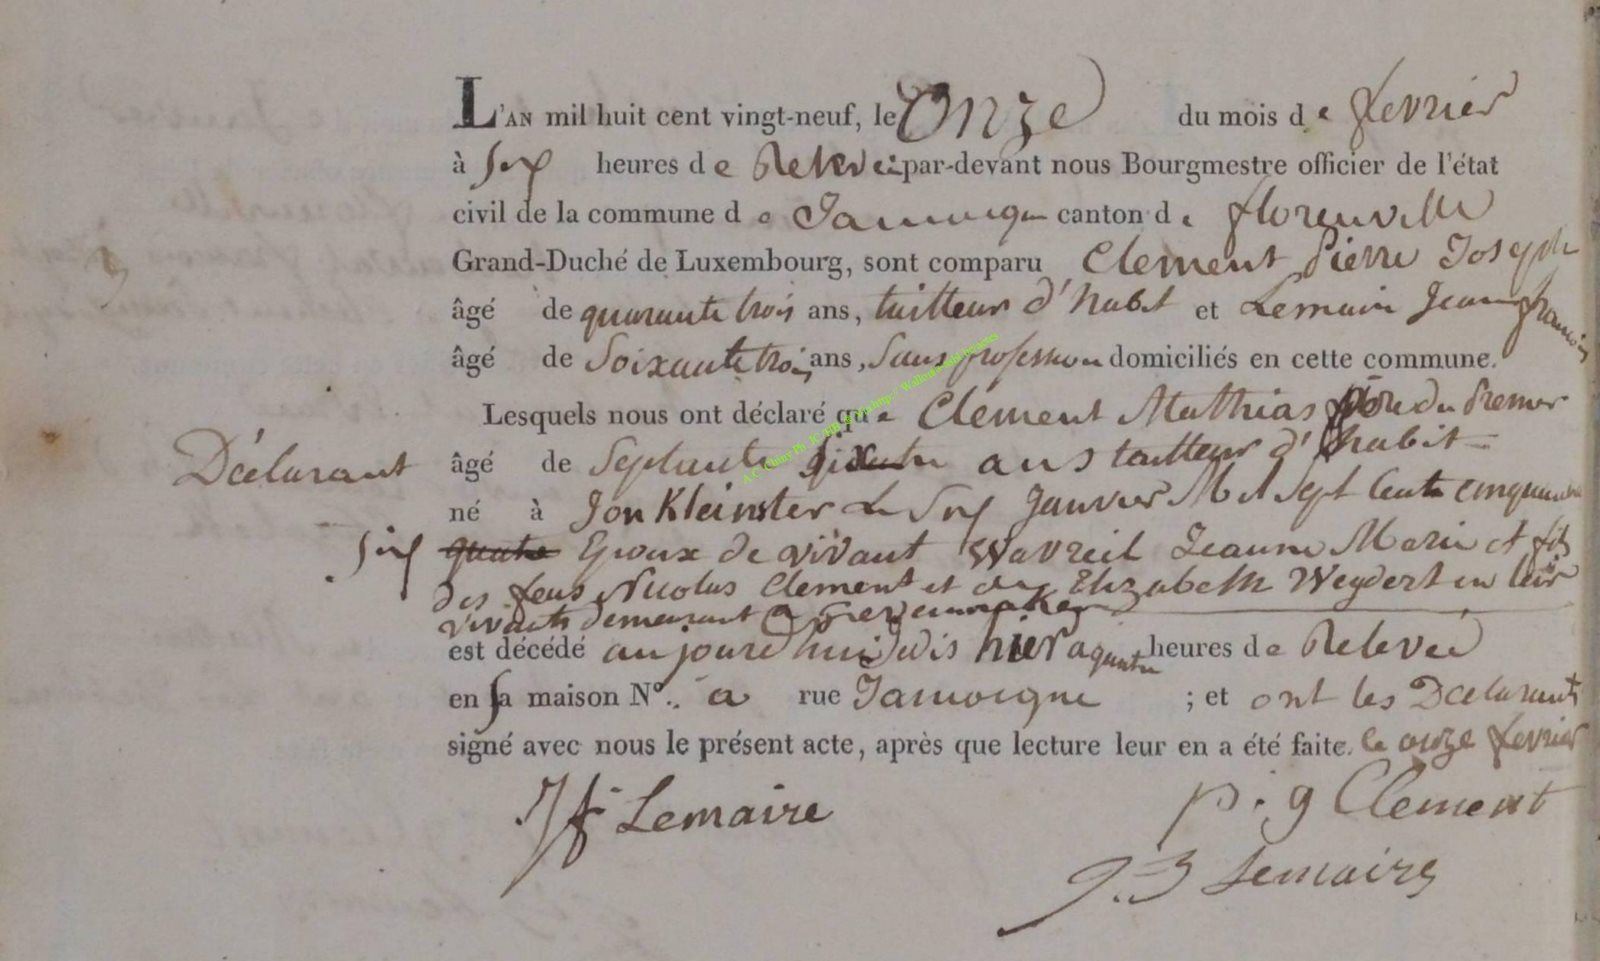 L'AN mil huit cent vingt-neuf, le Onze du mois de fevrier
à six heures de Relevée par-devant nous Bourgmestre officier de l'état
civil de la commune de Jamoigne canton de florenville
Grand-Duché de Luxembourg, sont comparu Clement Pierre Joseph
âgé de quarante trois ans, tailleur d'habit et Lemaire Jean françois
âgé de Soixante trois ans, Sans profession domiciliés en cette commune.
Lesquels nous ont déclaré que Clement Mathias père du Premier
Déclarant âgé de Septante ans tailleur d'habit
né à Jonkleinster Le six Janvier Mil Sept Cent cinquante
six quatre Epoux de vivant Wavreil Jeanne Marie et fils
des feus Nicolas Clement et de Elizabeth Weydert en leur
vivants demeurant a Grevenmaker
est décédé aujourd'hui dis hier a quatre heures de Relevée
en sa maison N°. a rue Jamoigne ; et ont les Déclarants
signé avec nous le présent acte, après que lecture leur en a été faite. le onze fevrier
Jf Lemaire
p. g Clement
J. B Lemaire